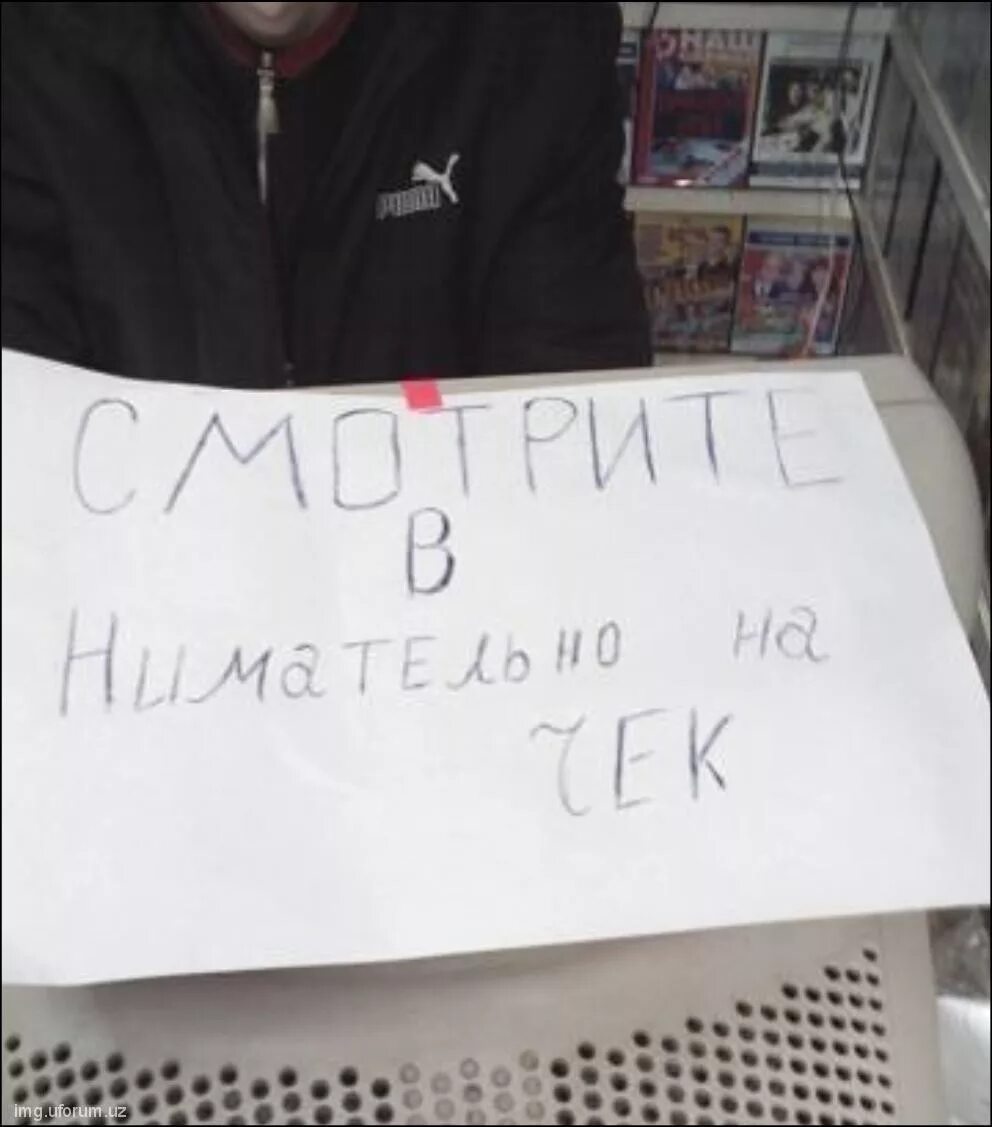 НАШ
PUMA
СМОТРИТЕ
В
НИМАТЕЛЬНО НА
ЧЕК
img.uforum.uz